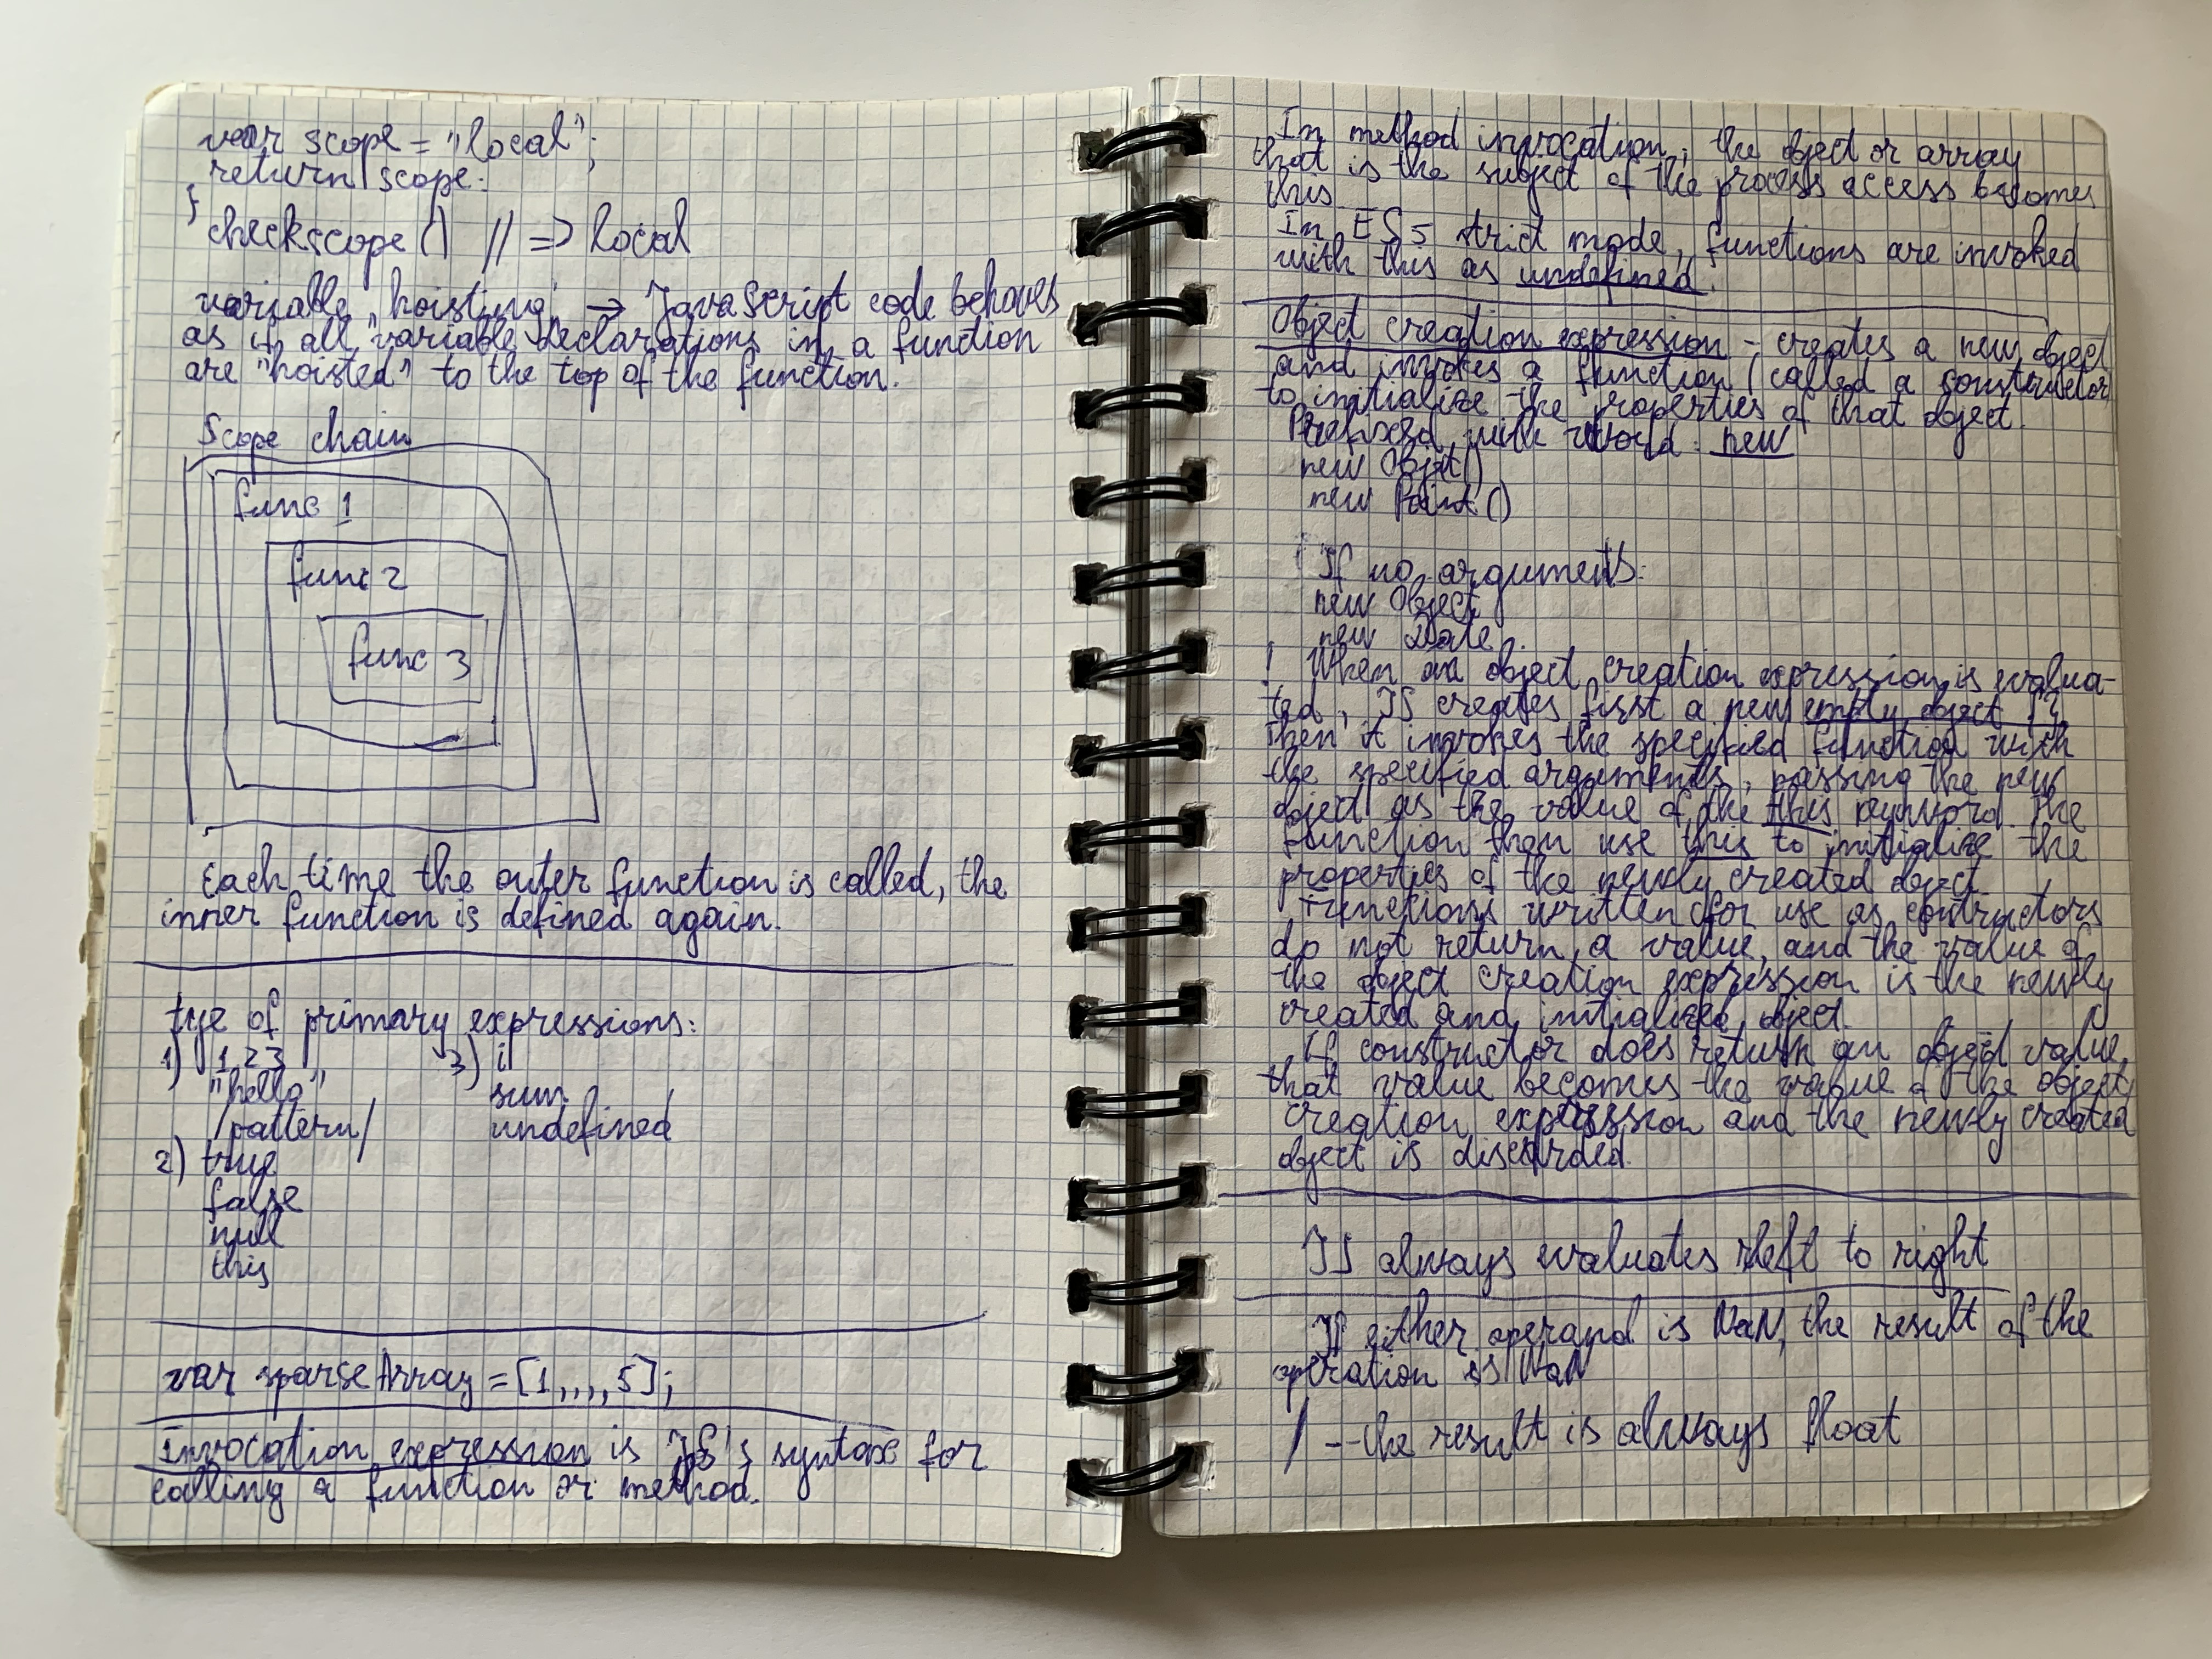 var scope = "local";
return scope:
}
checkscope() // => local
variable "hoisting" → JavaScript code behaves
as if all variable declarations in a function
are "hoisted" to the top of the function.
Scope chain
func 1
func 2
func 3
Each time the outer function is called, the
inner function is defined again.
tye of primary expressions:
1) 1.23
"hello"
/pattern/
2) true
false
null
this
3) i
sum
undefined
var sparseArray = [1,,,,5];
Invocation expression is JS's syntax for
calling a function or method.
In method invocation, the object or array
that is the subject of the process access becomes
this
In ES5 strict mode, functions are invoked
with this as undefined.
Object creation expression - creates a new object
and invokes a function (called a constructor
to initialize the properties of that object.
Prefixed with word: new
new Object()
new Point()
If no arguments:
new Object
new Date
! When an object creation expression is evalua-
ted, JS creates first a new empty object {}
Then it invokes the specified function with
the specified arguments, passing the new
object as the value of the this keyword. The
function then use this to initialize the
properties of the newly created object.
Functions written for use as contructors
do not return a value, and the value of
the object creation expression is the newly
created and initialized object.
If constructor does return an object value,
that value becomes the value of the object
creation expression and the newly created
object is discarded.
JS always evaluates left to right
If either operand is NaN, the result of the
operation is NaN
/ -- the result is always float